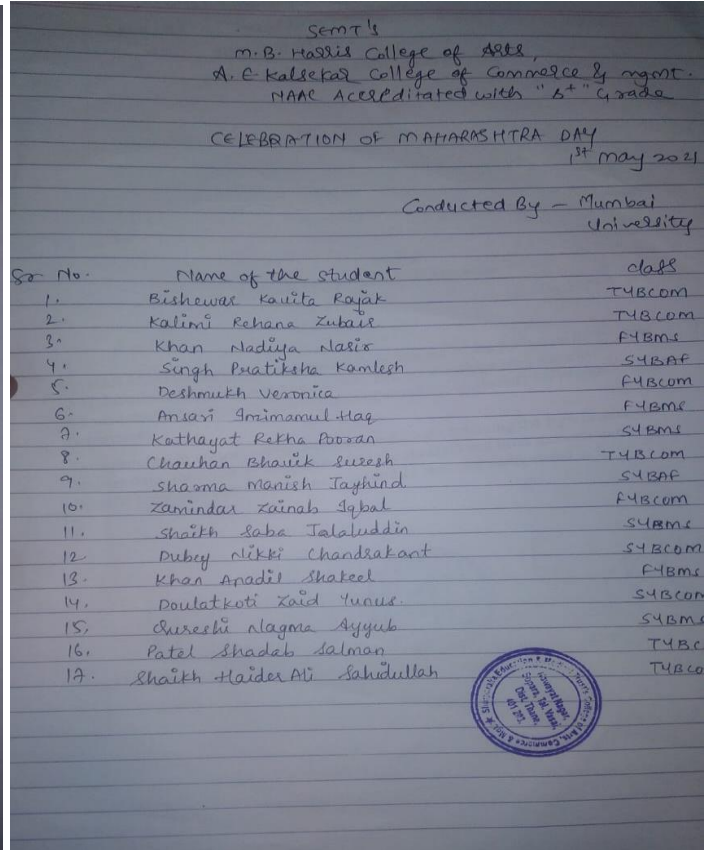 SEMT's
M.B. Harris College of Arts,
A.E. Kalsekar College of Commerce & mgmt.
NAAC Accreditated with "B+" Grade
CELEBRATION OF MAHARASHTRA DAY
1st May 2021
Conducted By - Mumbai
University
Sr No. Name of the student class
1. Bishewar Kavita Rajak TYBCOM
2. Kalimi Rehana Zubair TYBCOM
3. Khan Nadiya Nasir FYBMS
4. Singh Pratiksha Kamlesh SYBAF
5. Deshmukh Veronica FYBCOM
6. Ansari Haq FYBMS
7. Kathayat Rekha Pooran SYBMS
8. Chauhan Bhavik Suresh TYBCOM
9. Sharma Manish Jayhind SYBAF
10. Zamindar Zainab Iqbal FYBCOM
11. Shaikh Saba Jalaluddin SYBMS
12 Dubey Nikki Chandrakant SYBCOM
13. Khan Anadil Shakeel FYBMS
14. Doulatkoti Zaid Yunus. SYBCOM
15. Qureshi Nagma Ayyub SYBMS
16. Patel Shadab Salman TYBC
17. Shaikh Haider Ali Sahidullah TYBCO
Sopara, Tal. Vasai,
Dist. Thane,